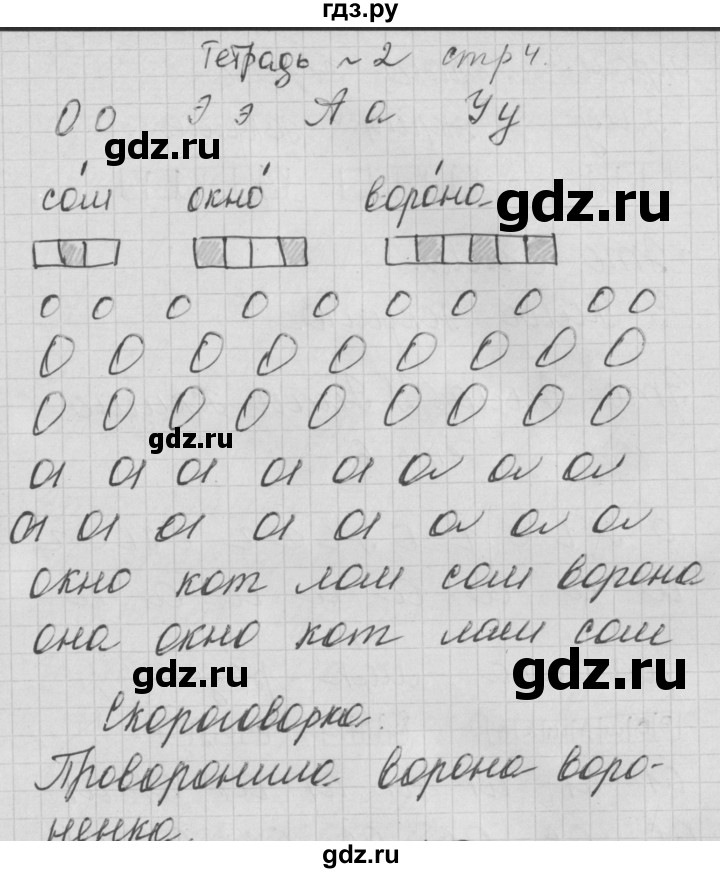 гдз.ру
Тетрадь №2 стр 4.
О о Э э А а У у
gdz.ru
со́м окно́ воро́на
gdz.ru
о о о о о о о о о о
О О О О О О О О О
О О О О О О О О О
gdz.ru
а а а а а а а а
а а а а а а а а а
окно кот лом сом ворона
она окно кот лом сом
gdz.ru gdz.ru
Скороговорка.
Проворонила ворона воро-
ненка.
gdz.ru